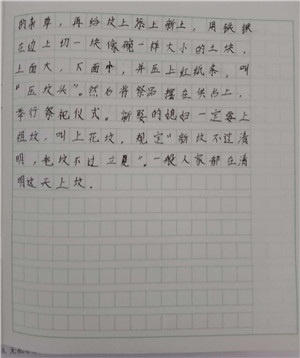 的杂草，再给坟上添上新土，用铁锹
在边上切一块像碗一样大小的土块，
上面大，下面小，并压上红纸条，叫
“压坟头”。然后将祭品摆在供台上，
举行祭祀仪式。新娶的媳妇一定要上
祖坟，叫上花坟，规定“新坟不过清
明，老坟不过立夏”。一般人家都在清
明这天上坟。